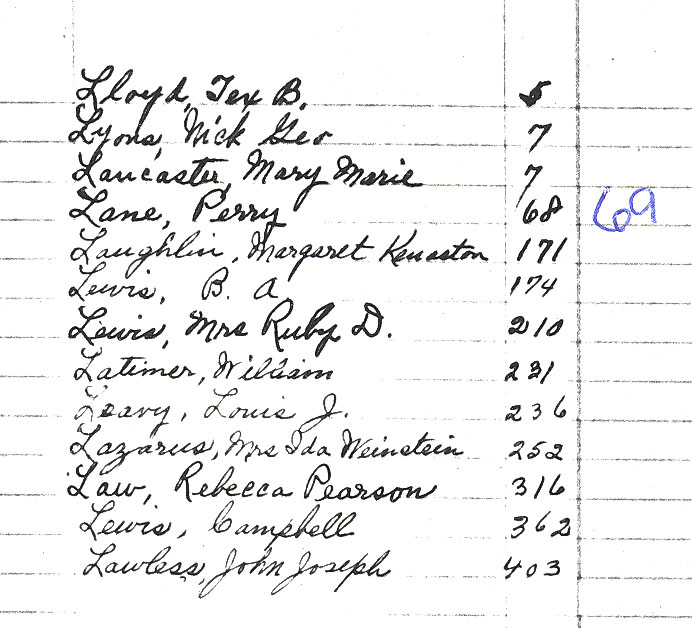 Lloyd, Tex B. 5
Lyons, Nick Geo 7
Lancaster, Mary Marie 7
Lane, Perry 68 69
Laughlin, Margaret Kenaston 171
Lewis, B. A 174
Lewis, Mrs Ruby D. 210
Latimer, William 231
Leavy, Louis J. 236
Lazarus, Mrs Ida Weinstein 252
Law, Rebecca Pearson 316
Lewis, Campbell 362
Lawless, John Joseph 403